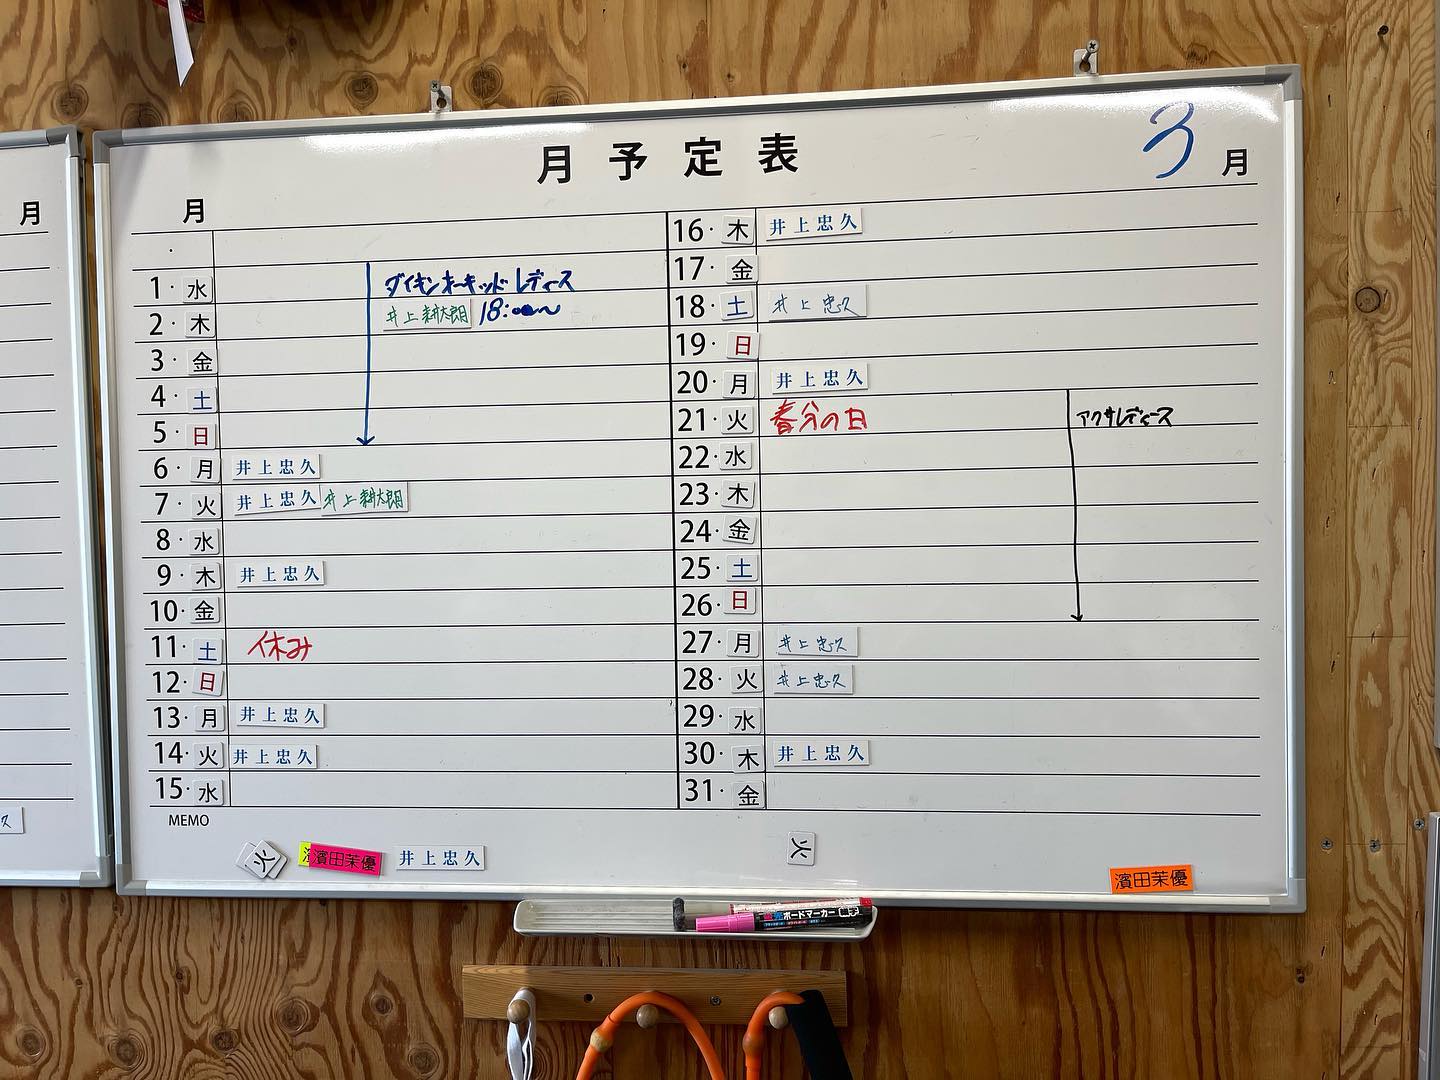 月予定表
3月
月
月
1・水 ダイキンオーキッドレディース
2・木 井上耕太朗 18:00〜
3・金
4・土
5・日
6・月 井上忠久
7・火 井上忠久 井上耕太朗
8・水
9・木 井上忠久
10・金
11・土 休み
12・日
13・月 井上忠久
14・火 井上忠久
15・水
MEMO
火 濱田茉優 井上忠久
16・木 井上忠久
17・金
18・土 井上忠久
19・日
20・月 井上忠久
21・火 春分の日 アクサレディース
22・水
23・木
24・金
25・土
26・日
27・月 井上忠久
28・火 井上忠久
29・水
30・木 井上忠久
31・金
火
濱田茉優
ボードマーカー